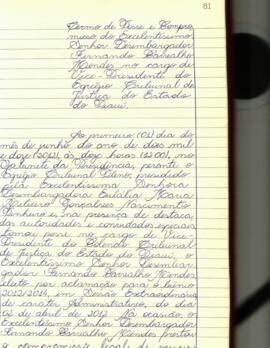 81
Termo de Posse e Compro
misso do Excelentíssimo
Senhor Desembargador
Fernando Carvalho
Mendes no cargo de
Vice-Presidente do
Egrégio Tribunal de
Justiça do Estado
do Piauí.
Ao primeiro (01) dia do
mês de junho do ano de dois mil
e doze (2012), às doze horas (12:00), no
Gabinete da Presidência, perante o
Egrégio Tribunal Pleno, presidido
pela Excelentíssima Senhora
Desembargadora Eulália Maria
Ribeiro Gonçalves Nascimento
Pinheiro e, na presença de destaca
das autoridades e convidados especiais
tomou posse no cargo de Vice-
Presidente do Colendo Tribunal
de Justiça do Estado do Piauí, o
Excelentíssimo Senhor Desembar
gador Fernando Carvalho Mendes
eleito por aclamação para o biênio
2012/2014, em Sessão Extraordinária
de caráter Administrativo, do dia
02 de abril de 2012. Na ocasião, o
Excelentíssimo Senhor Desembargador
Fernando Carvalho Mendes prestou
o compromisso legal de